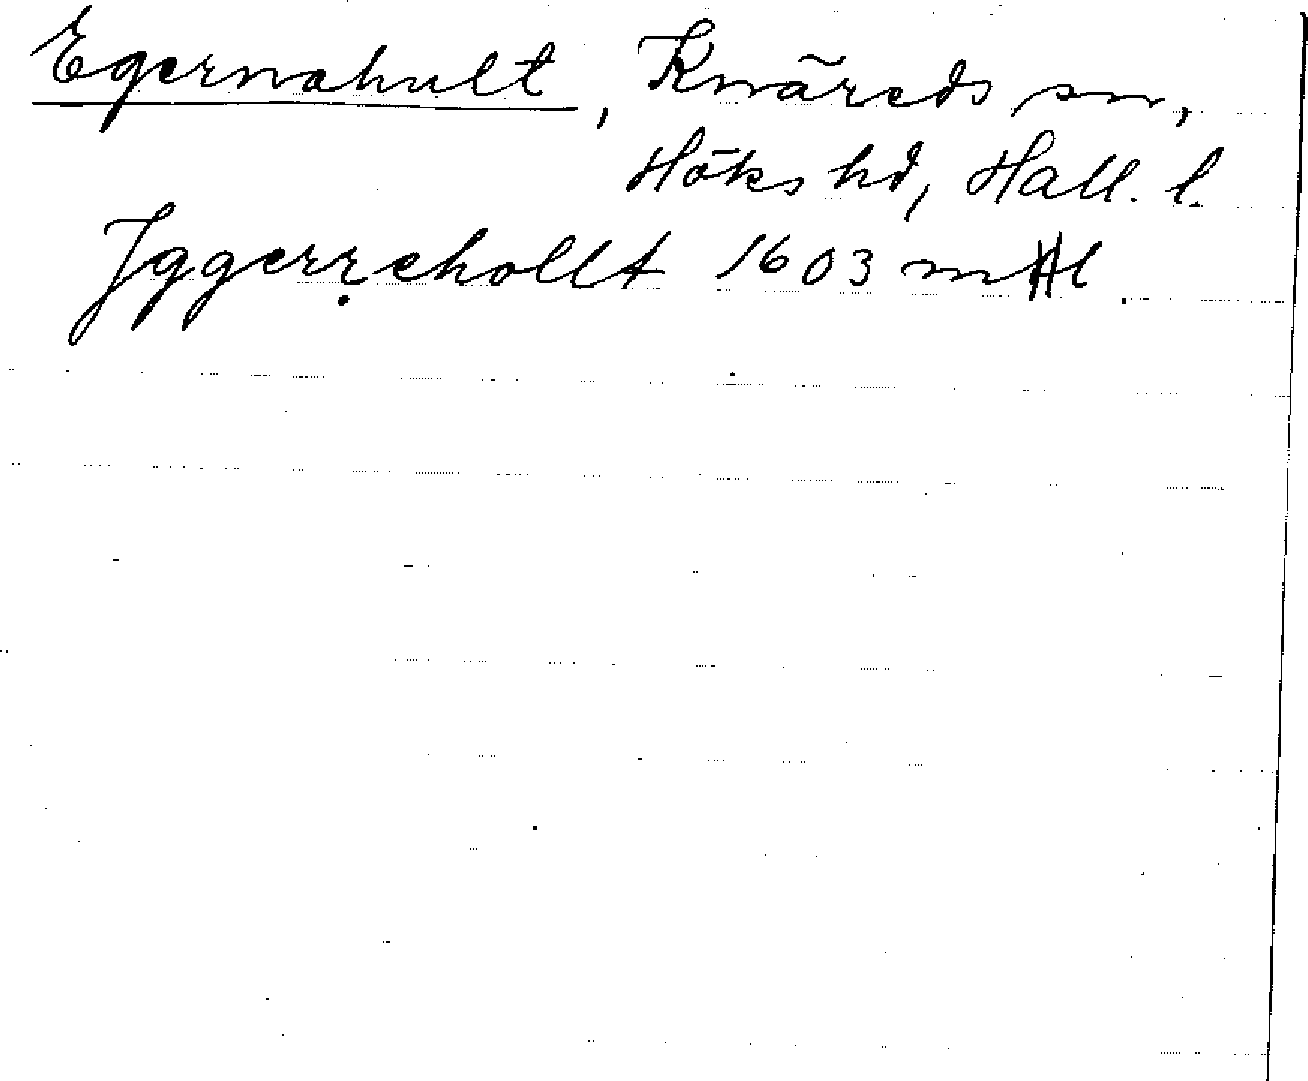 Egernahult, Knäreds sn,
Höks hd, Hall. l.
Jggerrehollt 1603 mHl